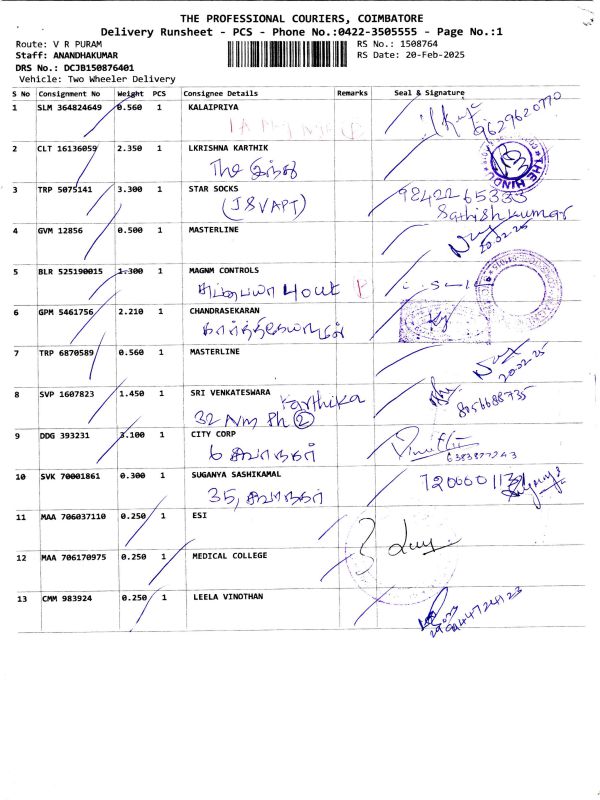 THE PROFESSIONAL COURIERS, COIMBATORE
Delivery Runsheet - PCS - Phone No.:0422-3505555 - Page No.:1
Route: V R PURAM RS No.: 1508764
Staff: ANANDHAKUMAR RS Date: 20-Feb-2025
DRS No.: DCJB1508764O1
Vehicle: Two Wheeler Delivery
S No Consignment No Weight PCS Consignee Details Remarks Seal & Signature
1 SLM 364824649 0.560 1 KALAIPRIYA
9629620770
2 CLT 16136059 2.350 1 LKRISHNA KARTHIK
The இந்து THE HINDU
3 TRP 5075141 3.300 1 STAR SOCKS 9842265333
(JSVAPT) Sathishkumar
4 GVM 12856 0.500 1 MASTERLINE
20.02.25
5 BLR 525190015 1.300 1 MAGNM CONTROLS
6 GPM 5461756 2.210 1 CHANDRASEKARAN
7 TRP 6870589 0.560 1 MASTERLINE
20.02.25
8 SVP 1607823 1.450 1 SRI VENKATESWARA Karthika
32 Nm Ph 2 8156688735
9 DDG 393231 3.100 1 CITY CORP
6383877243
10 SVK 70001861 0.300 1 SUGANYA SASHIKAMAL
35,
11 MAA 706037110 0.250 1 ESI
12 MAA 706170975 0.250 1 MEDICAL COLLEGE
13 CMM 983924 0.250 1 LEELA VINOTHAN